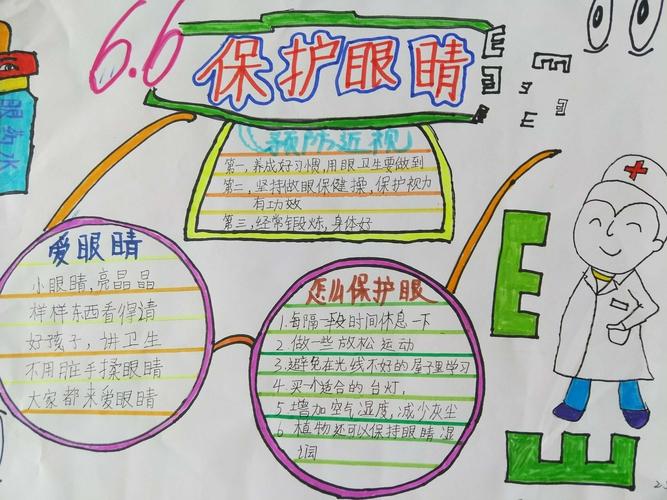 6.6
保护眼睛
眼药水
预防近视
第一,养成好习惯,用眼卫生要做到
第二,坚持做眼保健操,保护视力
有功效
第三,经常锻炼,身体好
爱眼睛
小眼睛,亮晶晶
样样东西看得请
好孩子,讲卫生
不用脏手揉眼睛
大家都来爱眼睛
怎么保护眼
1.每隔一段时间休息一下
2.做一些放松运动
3.避免在光线不好的屋子里学习
4.买一个适合的台灯,
5.增加空气湿度,减少灰尘
6.植物还可以保持眼睛湿
润
E
E